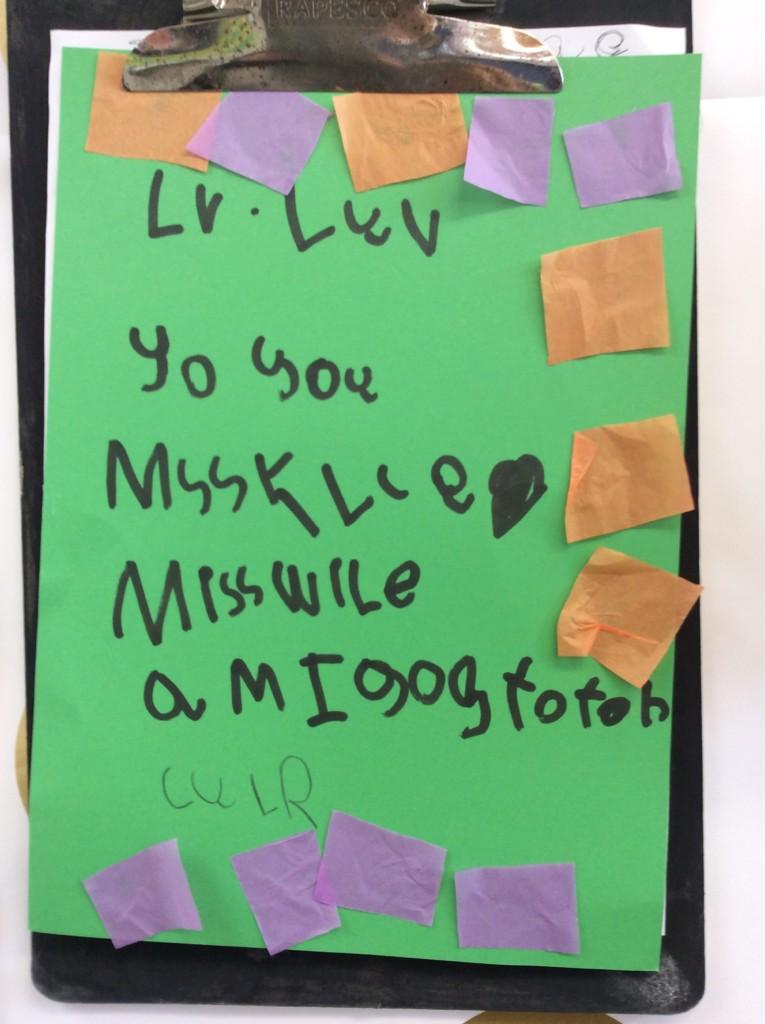 RAPESCO
Lv. Luv
yo you
MssKLce
Misswile
a M I goog totoh
cu LR